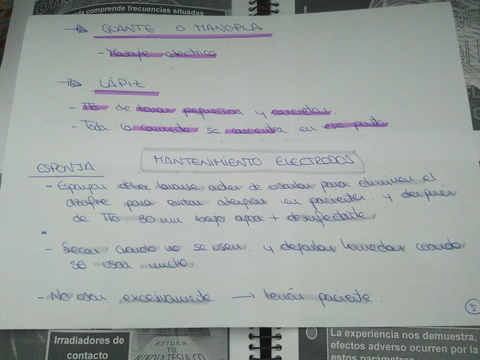 la comprende frecuencias situadas
→ GUANTE O MANOPLA
- Masaje electrico
→ LÁPIZ
- Tto de zonas pequeñas y concretas
- Toda la corriente se concentra en ese punto
MANTENIMIENTO ELECTRODOS
ESPONJA
- Esponjas deben lavarse antes de usarlas para eliminar el
azufre para evitar alergias en pacientes y despues
de Tto. 30 min bajo agua + desinfectante
- Secar cuando no se usen y dejarlas humedas cuando
se usan mucho.
- No usar excesivamente → lesión paciente.
5
Irradiadores de
contacto
RETURN
TO
NIKOLATESLA.CO
La experiencia nos demuestra,
efectos adverso ocurren por la
estos parámetros